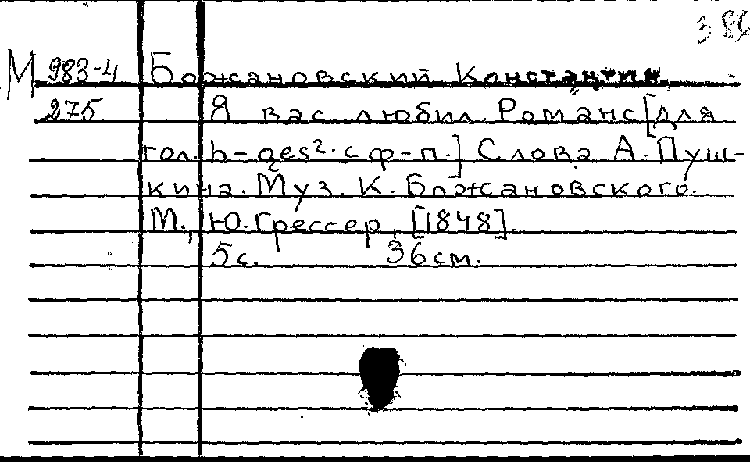 386
М 983-4 Божановский Константин
275 Я вас любил. Романс [для
гол. h-ges². с ф-п.] Слова А. Пуш-
кина. Муз. К. Божановского.
М., Ю. Грессер, [1848].
5 с. 36 см.